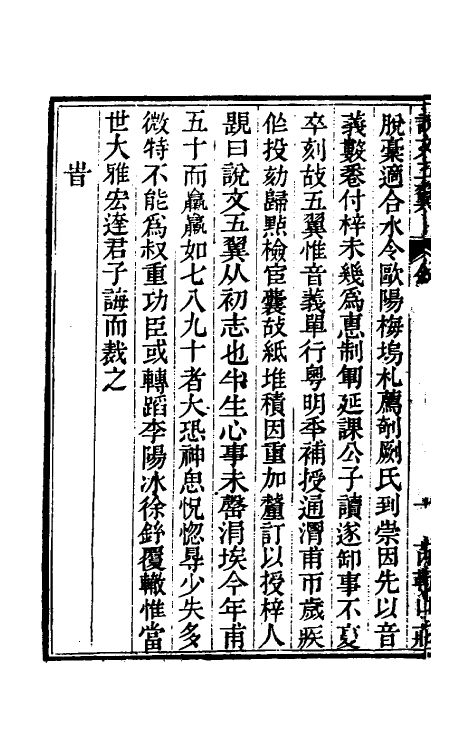 脫稾適合水令歐陽梅塢札薦剞劂氏到崇因先以音
義數卷付梓未幾爲惠制軍延課公子讀遂卸事不更
卒刻故五翼惟音義單行粤明秊補授通渭甫帀歲疾
作投劾歸點檢宦囊故紙堆積因重加釐訂以授梓人
題曰說文五翼从初志也半生心事未罄涓埃今年甫
五十而羸羸如七八九十者大恐神悤怳惚㝵少失多
微特不能爲叔重功臣或轉蹈李陽冰徐鉉覆轍惟當
世大雅宏達君子誨而裁之
昔